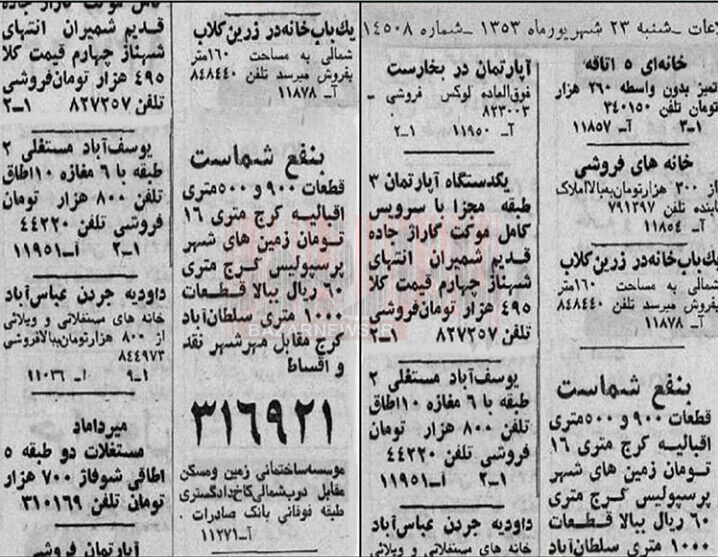 عات - شنبه ۲۳ شهریورماه ۱۳۵۳ - شماره ۱۴۵۰۸
خانه‌ای ۵ اتاقه
تمیز بدون واسطه ۲۶۰ هزار
تومان تلفن ۳۴۰۱۵۰
۳-۱ آ- ۱۱۸۵۷
خانه های فروشی
از ۳۰۰ هزارتومان‌ببالا‌املاک
آینده تلفن ۷۹۱۲۹۷
آ- ۱۱۸۵۴
یك‌باب‌خانه‌در زرین‌کلاب
شمالی به مساحت ۱۶۰متر
بفروش میرسد تلفن ۸۴۸۴۴۰
آ- ۱۱۸۷۸
بنفع شماست
قطعات ۹۰۰ و ۵۰۰متری
اقبالیه کرج متری ۱۶
تـومان زمین های شهر
پرسپولیس کـرج متری
۶۰ ریال ببالا قـطعات
۱۰۰۰ متری سلطان‌آباد
آپارتمان در بخارست
فوق‌العاده لوکس فروشی -
۸۲۳۰۰۳
۲-۱ آ- ۱۱۹۵۰
یکدستگاه آپارتمان ۳
طبقه مجزا با سرویس
کامل موکت گاراژ جاده
قدیم شمیران انتهای
شهناز چهارم قیمت کلا
۴۹۵ هزار تومان‌فروشی
تلفن ۸۲۷۲۵۷ ۲-۱
یوسف‌آباد مستغلی ۲
طبقه با ۶ مغازه ۱۰اطاق
تلفن ۸۰۰ هزار تومان
فروشی تلفن ۴۴۲۲۰
۲-۱ آ-۱۱۹۵۱
داودیه جردن عباس‌آباد
خانه های مستغلاتی و ویلائی
یك‌باب‌خانه‌در زرین کلاب
شمالی به مساحت ۱۶۰متر
بفروش میرسد تلفن ۸۴۸۴۴۰
آ- ۱۱۸۷۸
بنفع شماست
قطعات ۹۰۰ و ۵۰۰متری
اقبالیه کرج متری ۱۶
تـومان زمین های شهر
پرسپولیس کـرج متری
۶۰ ریال ببالا قـطعات
۱۰۰۰ متری سلطان‌آباد
کرج مقابل مهرشهر نقد
و اقساط
۳۱۶۹۲۱
موسسه‌ساختمانی زمین ومسکن
مقابل درب‌شمالی‌کاخ‌دادگستری
طبقه فوقانی بانک صادرات
آ-۱۱۲۷۱
کامل موکت گاراژ جاده
قدیم شمیران انتهای
شهناز چهارم قیمت کلا
۴۹۵ هزار تومان‌فروشی
تلفن ۸۲۷۲۵۷ ۲-۱
یوسف‌آباد مستغلی ۲
طبقه با ۶ مغازه ۱۰اطاق
تلفن ۸۰۰ هزار تومان
فروشی تلفن ۴۴۲۲۰
۲-۱ آ-۱۱۹۵۱
داودیه جردن عباس‌آباد
خانه های مستغلاتی و ویلائی
از ۸۰۰ هزارتومان‌ببالافروشی
۸۴۴۹۷۳
۹-۱ آ- ۱۱۰۳۶
میرداماد
مستغلات دو طبقه ۵
اطاقی شوفاژ ۷۰۰ هزار
تومان تلفن ۳۱۰۱۶۹
آپارتمان فروشی
BAZARNEWS.IR